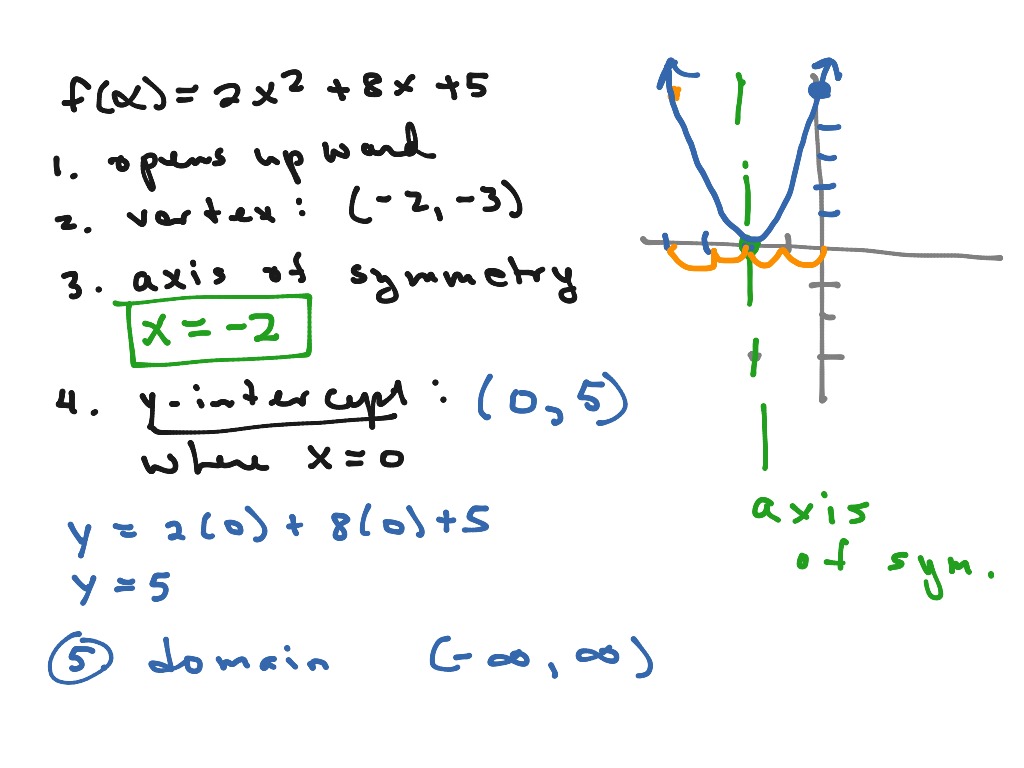 f(x) = 2x² + 8x + 5
1. opens upward
2. vertex: (-2, -3)
3. axis of symmetry
x = -2
4. y-intercept: (0, 5)
where x = 0
y = 2(0) + 8(0) + 5
y = 5
5 domain (-∞, ∞)
axis
of sym.